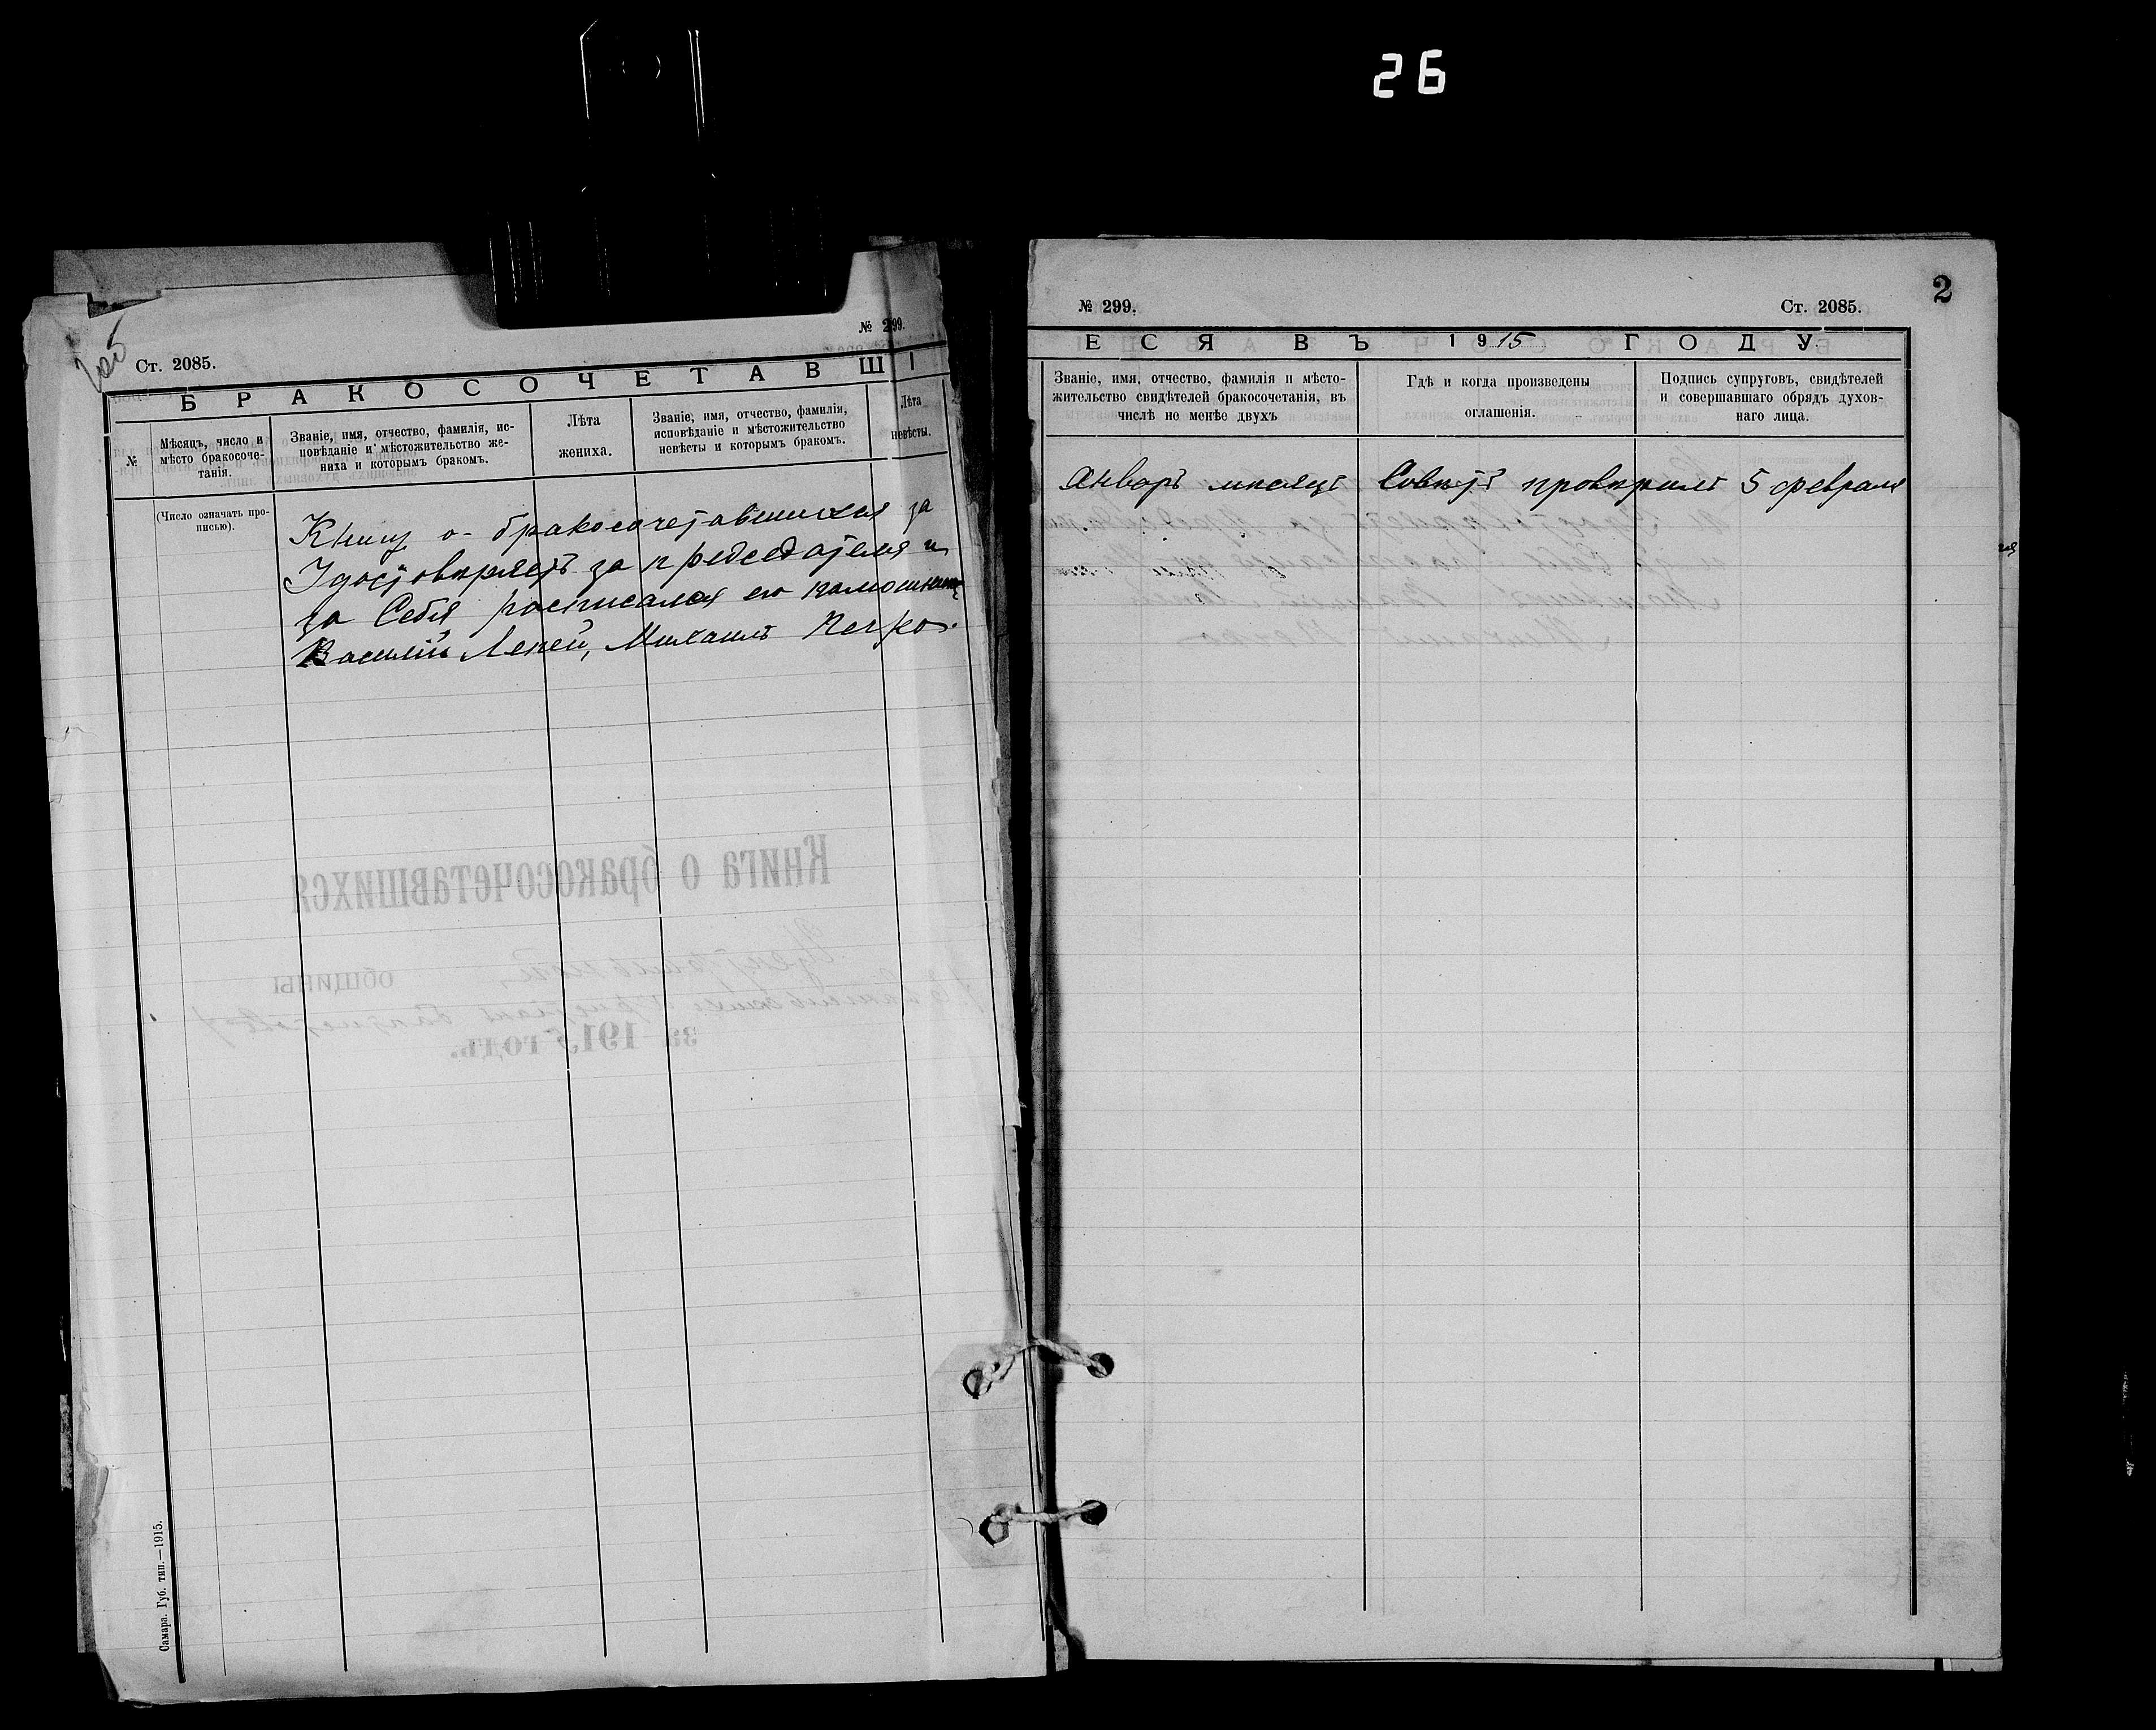 26
Ст. 2085.
№ 299.
БРАКОСОЧЕТАВШІ
№
Мѣсяцъ, число и
мѣсто бракосоче-
танія.
Званіе, имя, отчество, фамилія, ис-
повѣданіе и мѣстожительство же-
ниха и которымъ бракомъ.
Лѣта
жениха.
Званіе, имя, отчество, фамилія,
исповѣданіе и мѣстожительство
невѣсты и которымъ бракомъ.
Лѣта
невѣсты.
(Число означать про-
писью).
Книгу о бракосочетавшихся за
Удостовѣряетъ за председателя и
за Себя росписался его помошникъ
Василій Лепей, Михаилъ
Книга о бракосочетавшихся
общины
за 1915 годъ.
Самара. Губ. тип.—1915.
№ 299.
Ст. 2085.
2
ЕСЯ ВЪ 1915 ГОДУ.
Званіе, имя, отчество, фамилія и мѣсто-
жительство свидѣтелей бракосочетанія, въ
числѣ не менѣе двухъ
Гдѣ и когда произведены
оглашенія.
Подпись супруговъ, свидѣтелей
и совершавшаго обрядъ духов-
наго лица.
Январъ мѣсяцъ Совѣтъ провѣрилъ 5 февраля